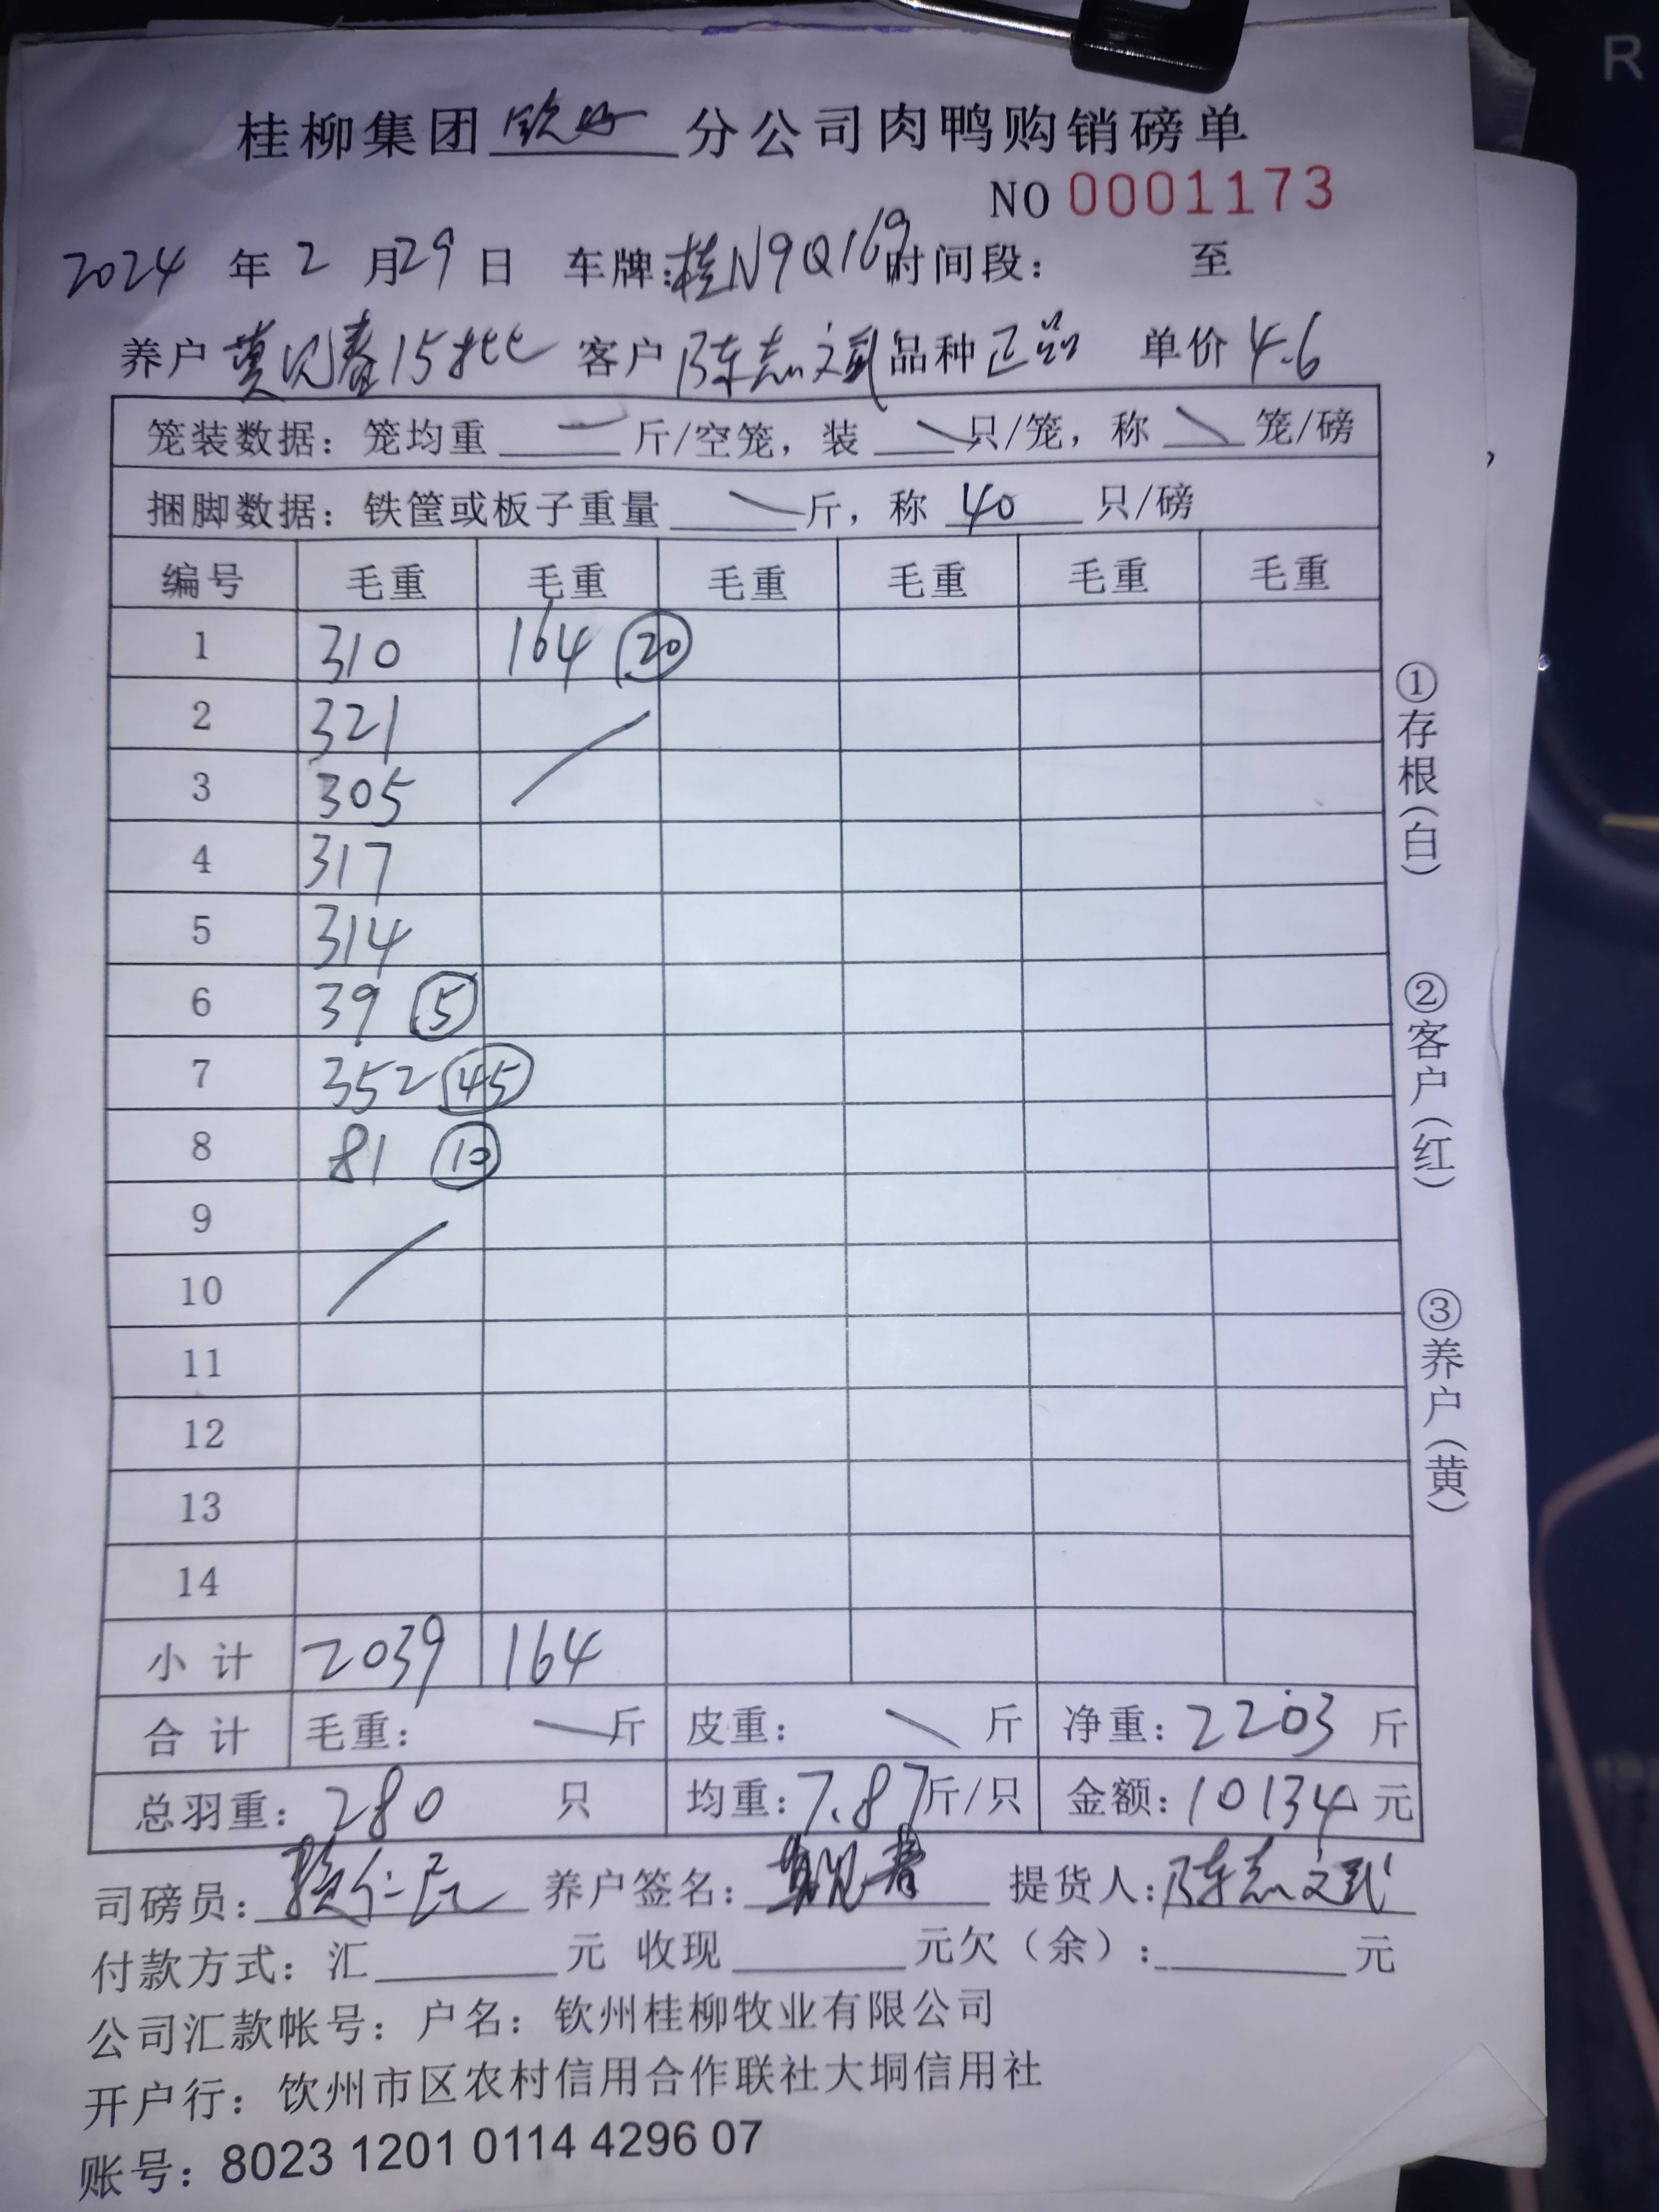 桂柳集团钦州分公司肉鸭购销磅单
NO 0001173
2024年2月29日 车牌:桂N9Q169 时间段: 至
养户 莫见春15批 客户 陈志斌 品种 正品 单价 4.6
笼装数据: 笼均重 斤/空笼, 装 只/笼, 称 笼/磅
捆脚数据: 铁筐或板子重量 斤, 称 40 只/磅
编号 毛重 毛重 毛重 毛重 毛重 毛重
1 310 164 ⑳
2 321
3 305
4 317
5 314
6 39 ⑤
7 352 ㊺
8 81 ⑩
9
10
11
12
13
14
小计 2039 164
合计 毛重: 斤 皮重: 斤 净重: 2203 斤
总羽重: 280 只 均重: 7.87斤/只 金额: 10134 元
司磅员: 养户签名: 莫见春 提货人: 陈志斌
付款方式: 汇 元 收现 元欠(余): 元
公司汇款帐号: 户名: 钦州桂柳牧业有限公司
开户行: 钦州市区农村信用合作联社大垌信用社
账号: 8023 1201 0114 4296 07
①存根(白)
②客户(红)
③养户(黄)
R